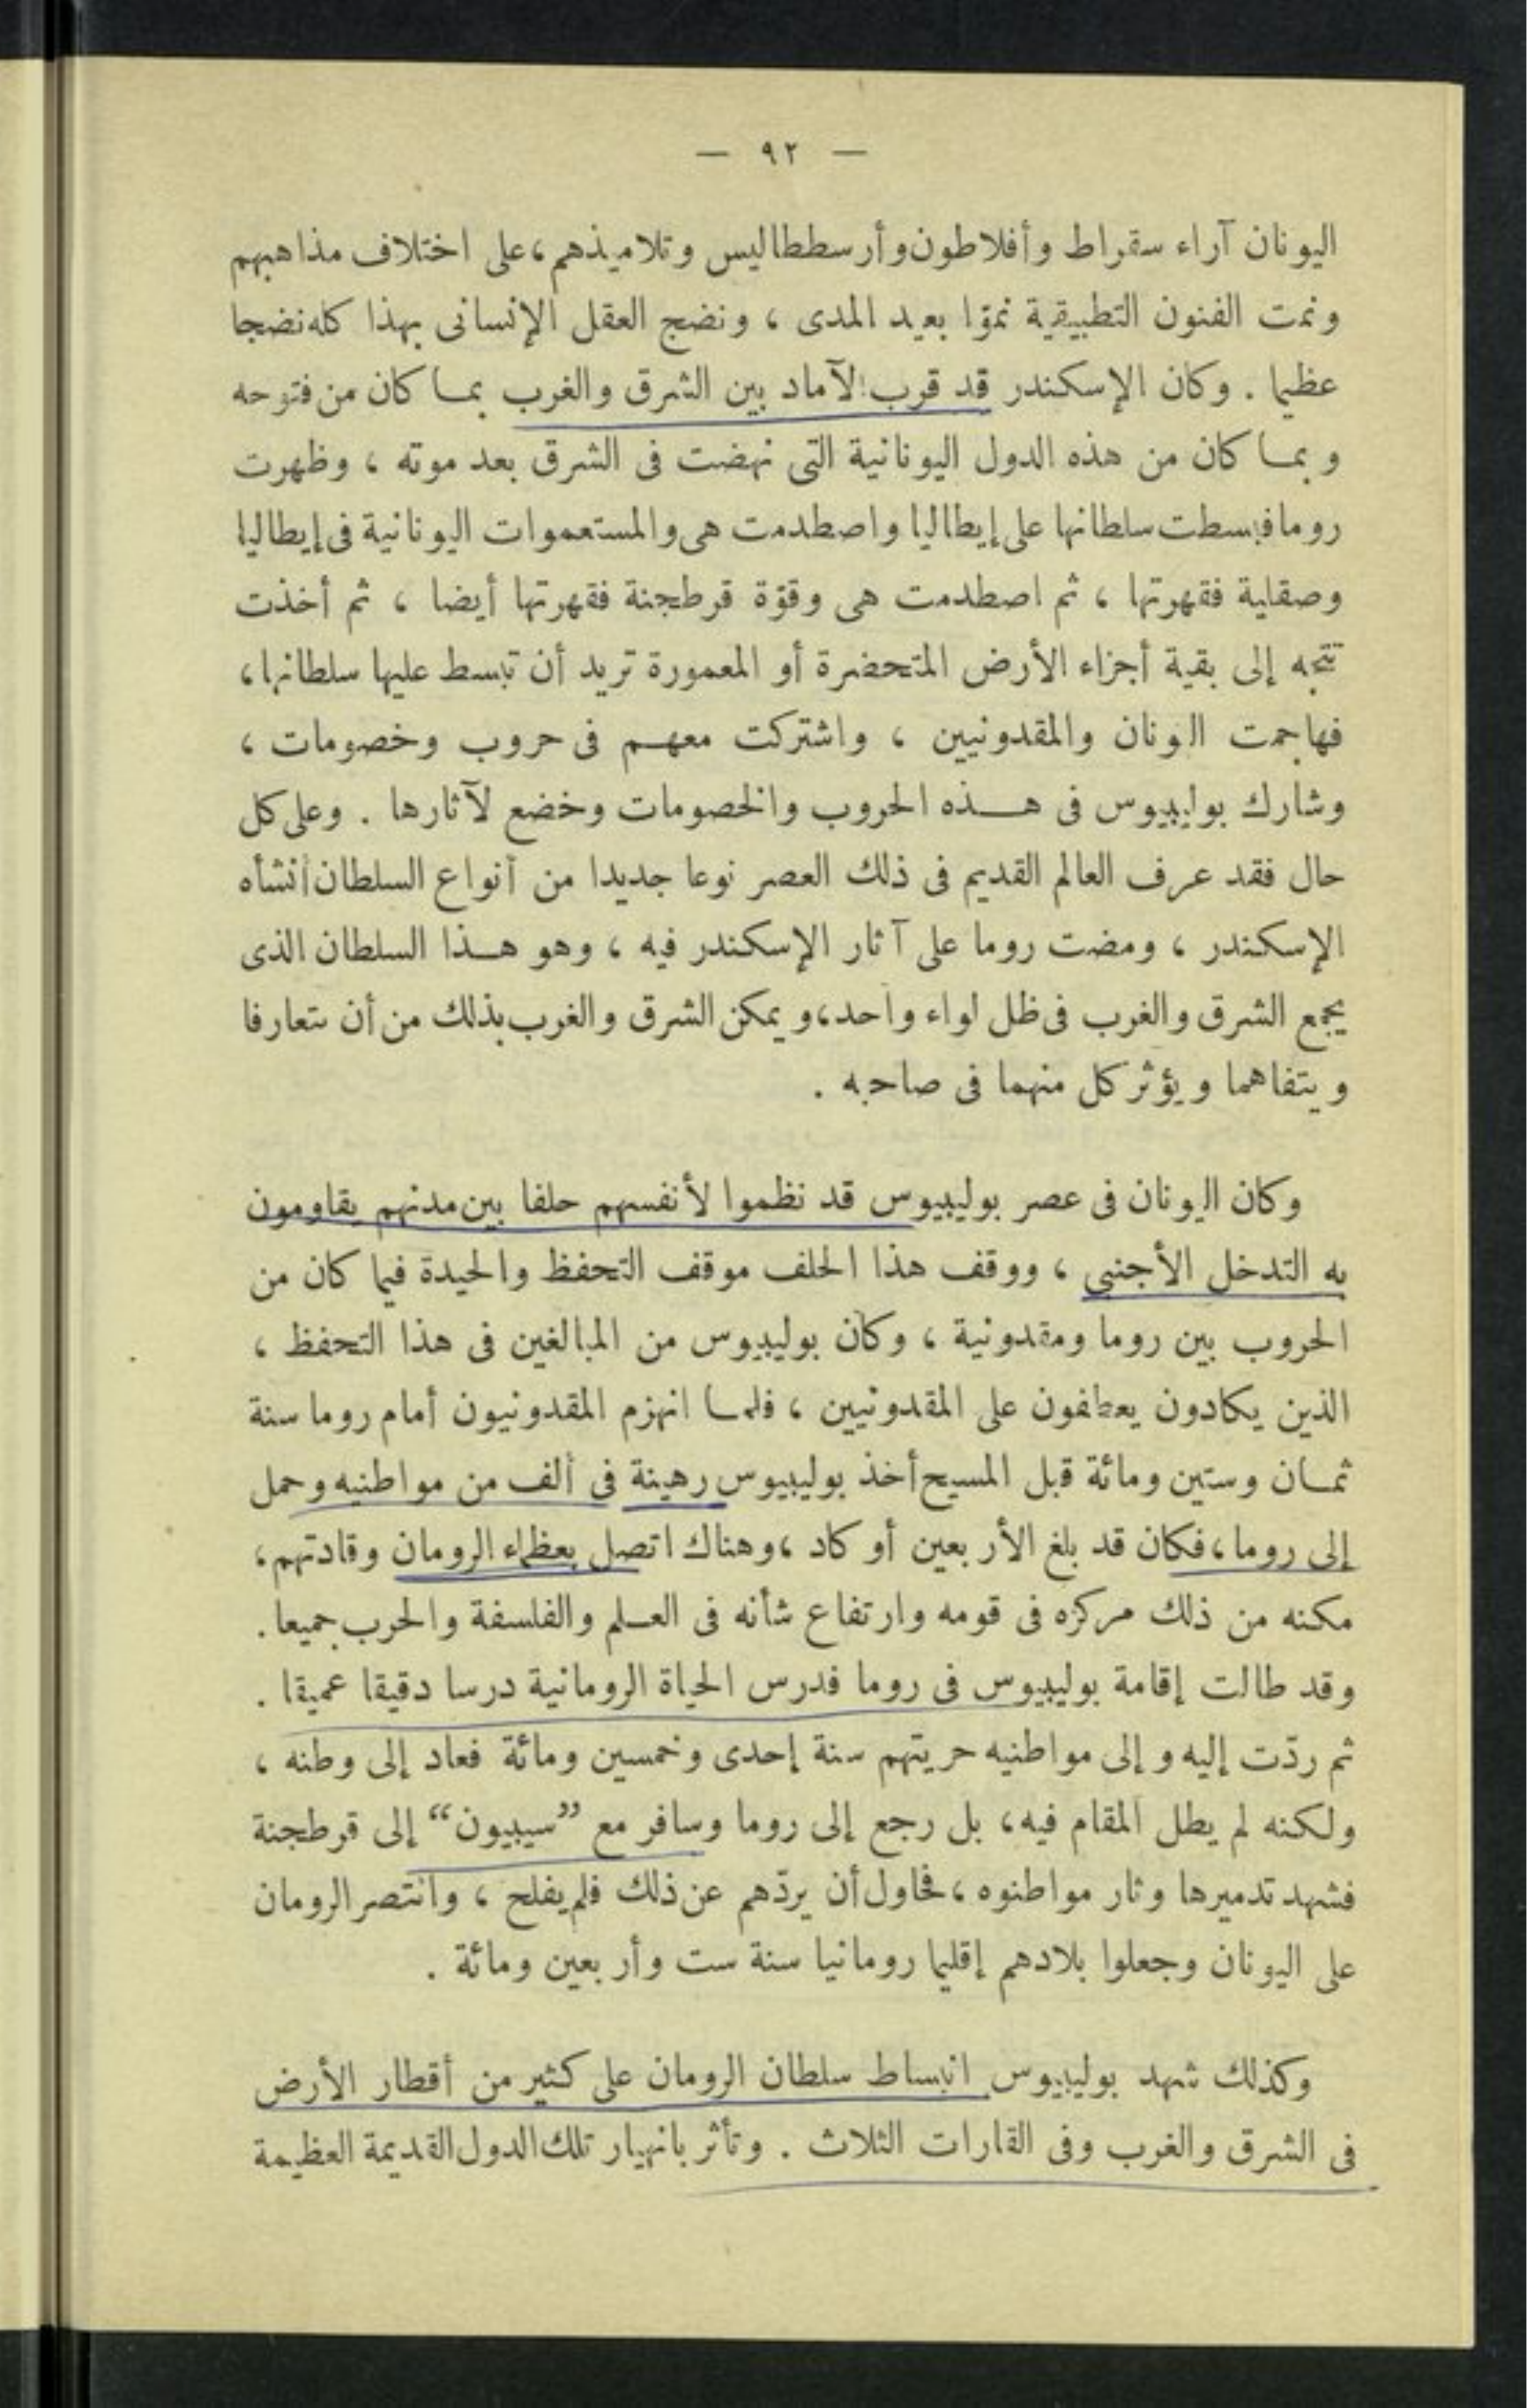 — ٩٢ —
اليونان آراء سقراط وأفلاطون وأرسططاليس وتلاميذهم، على اختلاف مذاهبهم
ونمت الفنون التطبيقية نموّا بعيد المدى ، ونضج العقل الإنسانى بهذا كله نضجا
عظيما . وكان الإسكندر قد قرب الآماد بين الشرق والغرب بمـا كان من فتوحه
وبمـا كان من هذه الدول اليونانية التى نهضت فى الشرق بعد موته ، وظهرت
روما فبسطت سلطانها على إيطاليا واصطدمت هى والمستعموات اليونانية فى إيطاليا
وصقلية فقهرتها ، ثم اصطدمت هى وقوّة قرطجنة فقهرتها أيضا ، ثم أخذت
تتجه إلى بقية أجزاء الأرض المتحضرة أو المعمورة تريد أن تبسط عليها سلطانها ،
فهاجمت اليونان والمقدونيين ، واشتركت معهـم فى حروب وخصومات ،
وشارك بوليبيوس فى هـذه الحروب والخصومات وخضع لآثارها . وعلى كل
حال فقد عرف العالم القديم فى ذلك العصر نوعا جديدا من أنواع السلطان أنشأه
الإسكندر ، ومضت روما على آثار الإسكندر فيه ، وهو هـذا السلطان الذى
يجمع الشرق والغرب فى ظل لواء واحد، ويمكن الشرق والغرب بذلك من أن يتعارفا
ويتفاهما ويؤثر كل منهما فى صاحبه .
وكان اليونان فى عصر بوليبيوس قد نظموا لأنفسهم حلفا بين مدنهم يقاومون
به التدخل الأجنبى ، ووقف هذا الحلف موقف التحفظ والحيدة فيما كان من
الحروب بين روما ومقدونية ، وكان بوليبيوس من المبالغين فى هذا التحفظ ،
الذين يكادون يعطفون على المقدونيين ، فلمـا انهزم المقدونيون أمام روما سنة
ثمـان وستين ومائة قبل المسيح أخذ بوليبيوس رهينة فى ألف من مواطنيه وحمل
إلى روما، فكان قد بلغ الأربعين أو كاد ، وهناك اتصل بعظماء الرومان وقادتهم،
مكنه من ذلك مركزه فى قومه وارتفاع شأنه فى العـلم والفلسفة والحرب جميعا .
وقد طالت إقامة بوليبيوس فى روما فدرس الحياة الرومانية درسا دقيقا عميقا .
ثم ردّت إليه وإلى مواطنيه حريتهم سنة إحدى وخمسين ومائة فعاد إلى وطنه ،
ولكنه لم يطل المقام فيه، بل رجع إلى روما وسافر مع ”سيبيون“ إلى قرطجنة
فشهد تدميرها وثار مواطنوه ، فحاول أن يردّهم عن ذلك فلم يفلح ، وانتصر الرومان
على اليونان وجعلوا بلادهم إقليما رومانيا سنة ست وأربعين ومائة .
وكذلك شهد بوليبيوس انبساط سلطان الرومان على كثير من أقطار الأرض
فى الشرق والغرب وفى القارات الثلاث . وتأثر بانهيار تلك الدول القديمة العظيمة